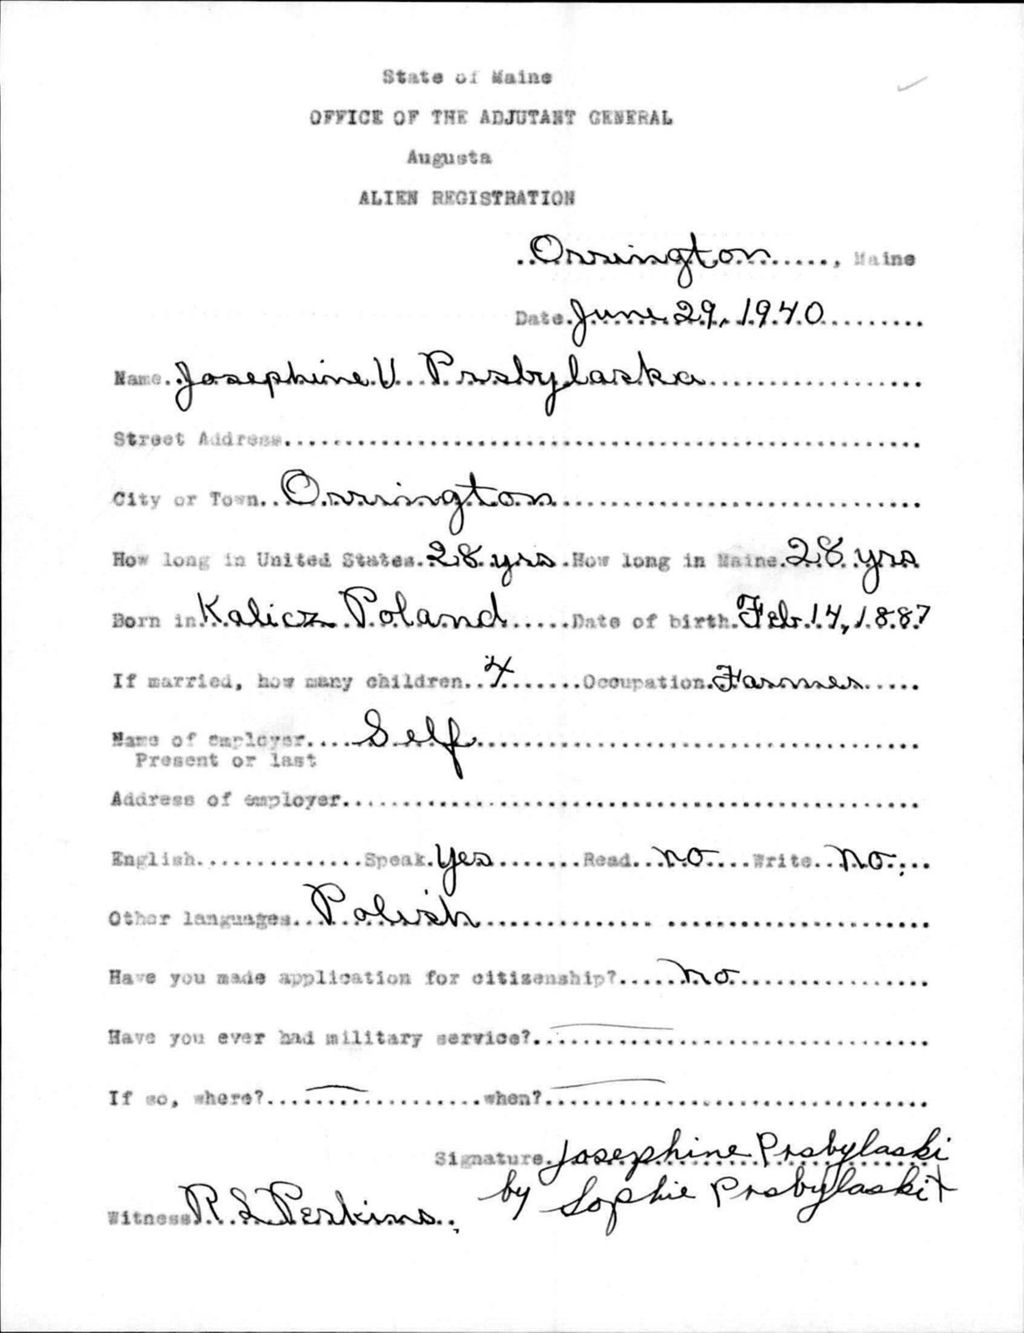 State of Maine
OFFICE OF THE ADJUTANT GENERAL
Augusta
ALIEN REGISTRATION
Orrington, Maine
Date June 29, 1940
Name Josephine V Prsbylaska
Street Address
City or Town Orrington
How long in United States 28 yrs How long in Maine 28 yrs
Born in Kalicz Poland Date of birth Feb. 14, 1887
If married, how many children 4 Occupation Farmer
Name of employer Self
Present or last
Address of employer
English Speak Yes Read no Write no.
Other languages Polish
Have you made application for citizenship? no
Have you ever had military service? —
If so, where? — when? —
Signature Josephine Prsbylaski
by Sophie Prsbylaski +
Witness R. L. Perkins.